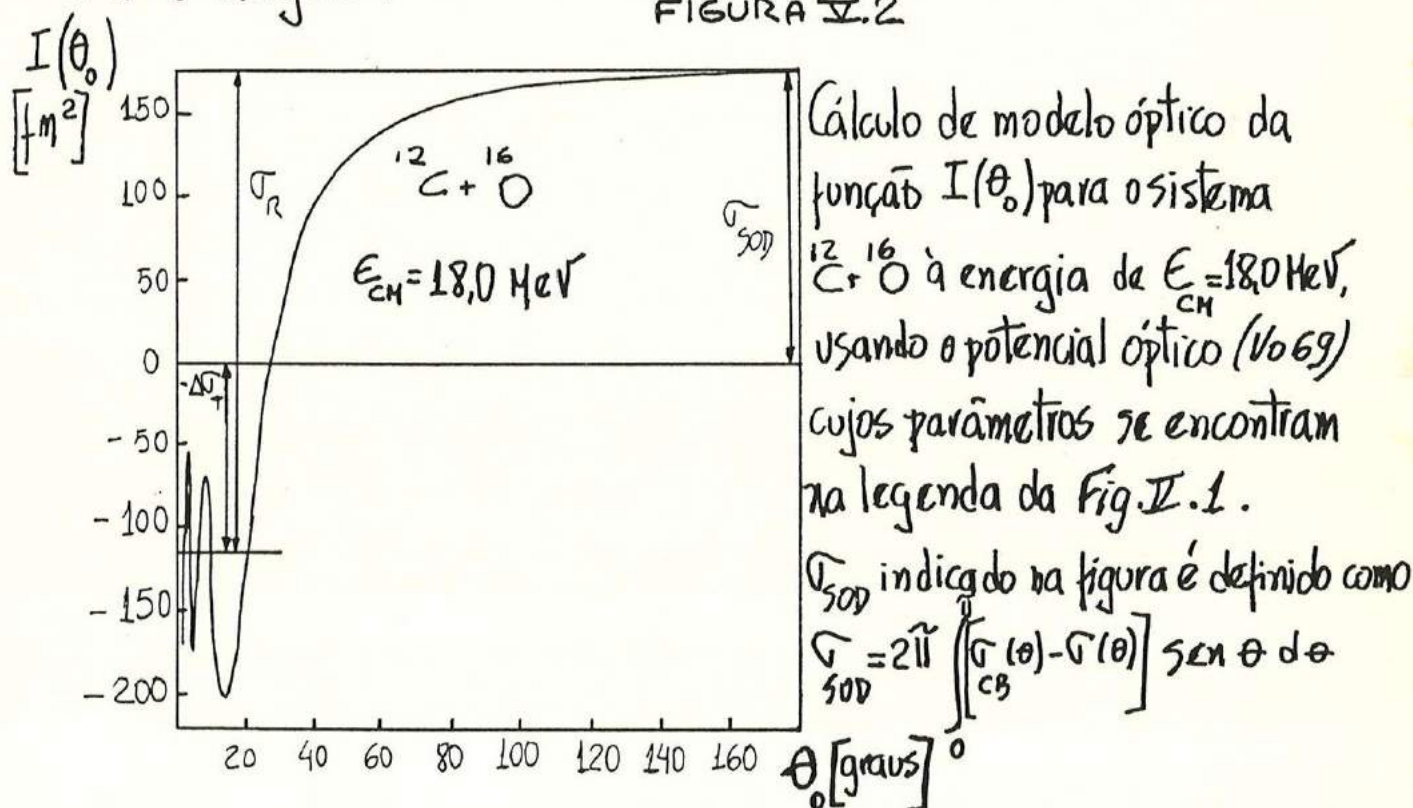 FIGURA V.2
I(θ₀)
[fm²]
150
100
50
0
- 50
- 100
- 150
- 200
σ_R
¹²C + ¹⁶O
Є_CM = 18,0 MeV
σ_SOD
-Δσ_T
20 40 60 80 100 120 140 160 θ₀ [graus]
Cálculo de modelo óptico da
função I(θ₀) para o sistema
¹²C + ¹⁶O à energia de Є_CM = 18,0 MeV,
usando o potencial óptico (Vo69)
cujos parâmetros se encontram
na legenda da Fig. V.1.
σ_SOD indicado na figura é definido como
σ_SOD = 2π ∫₀^π [σ_CB(θ) - σ(θ)] sen θ dθ